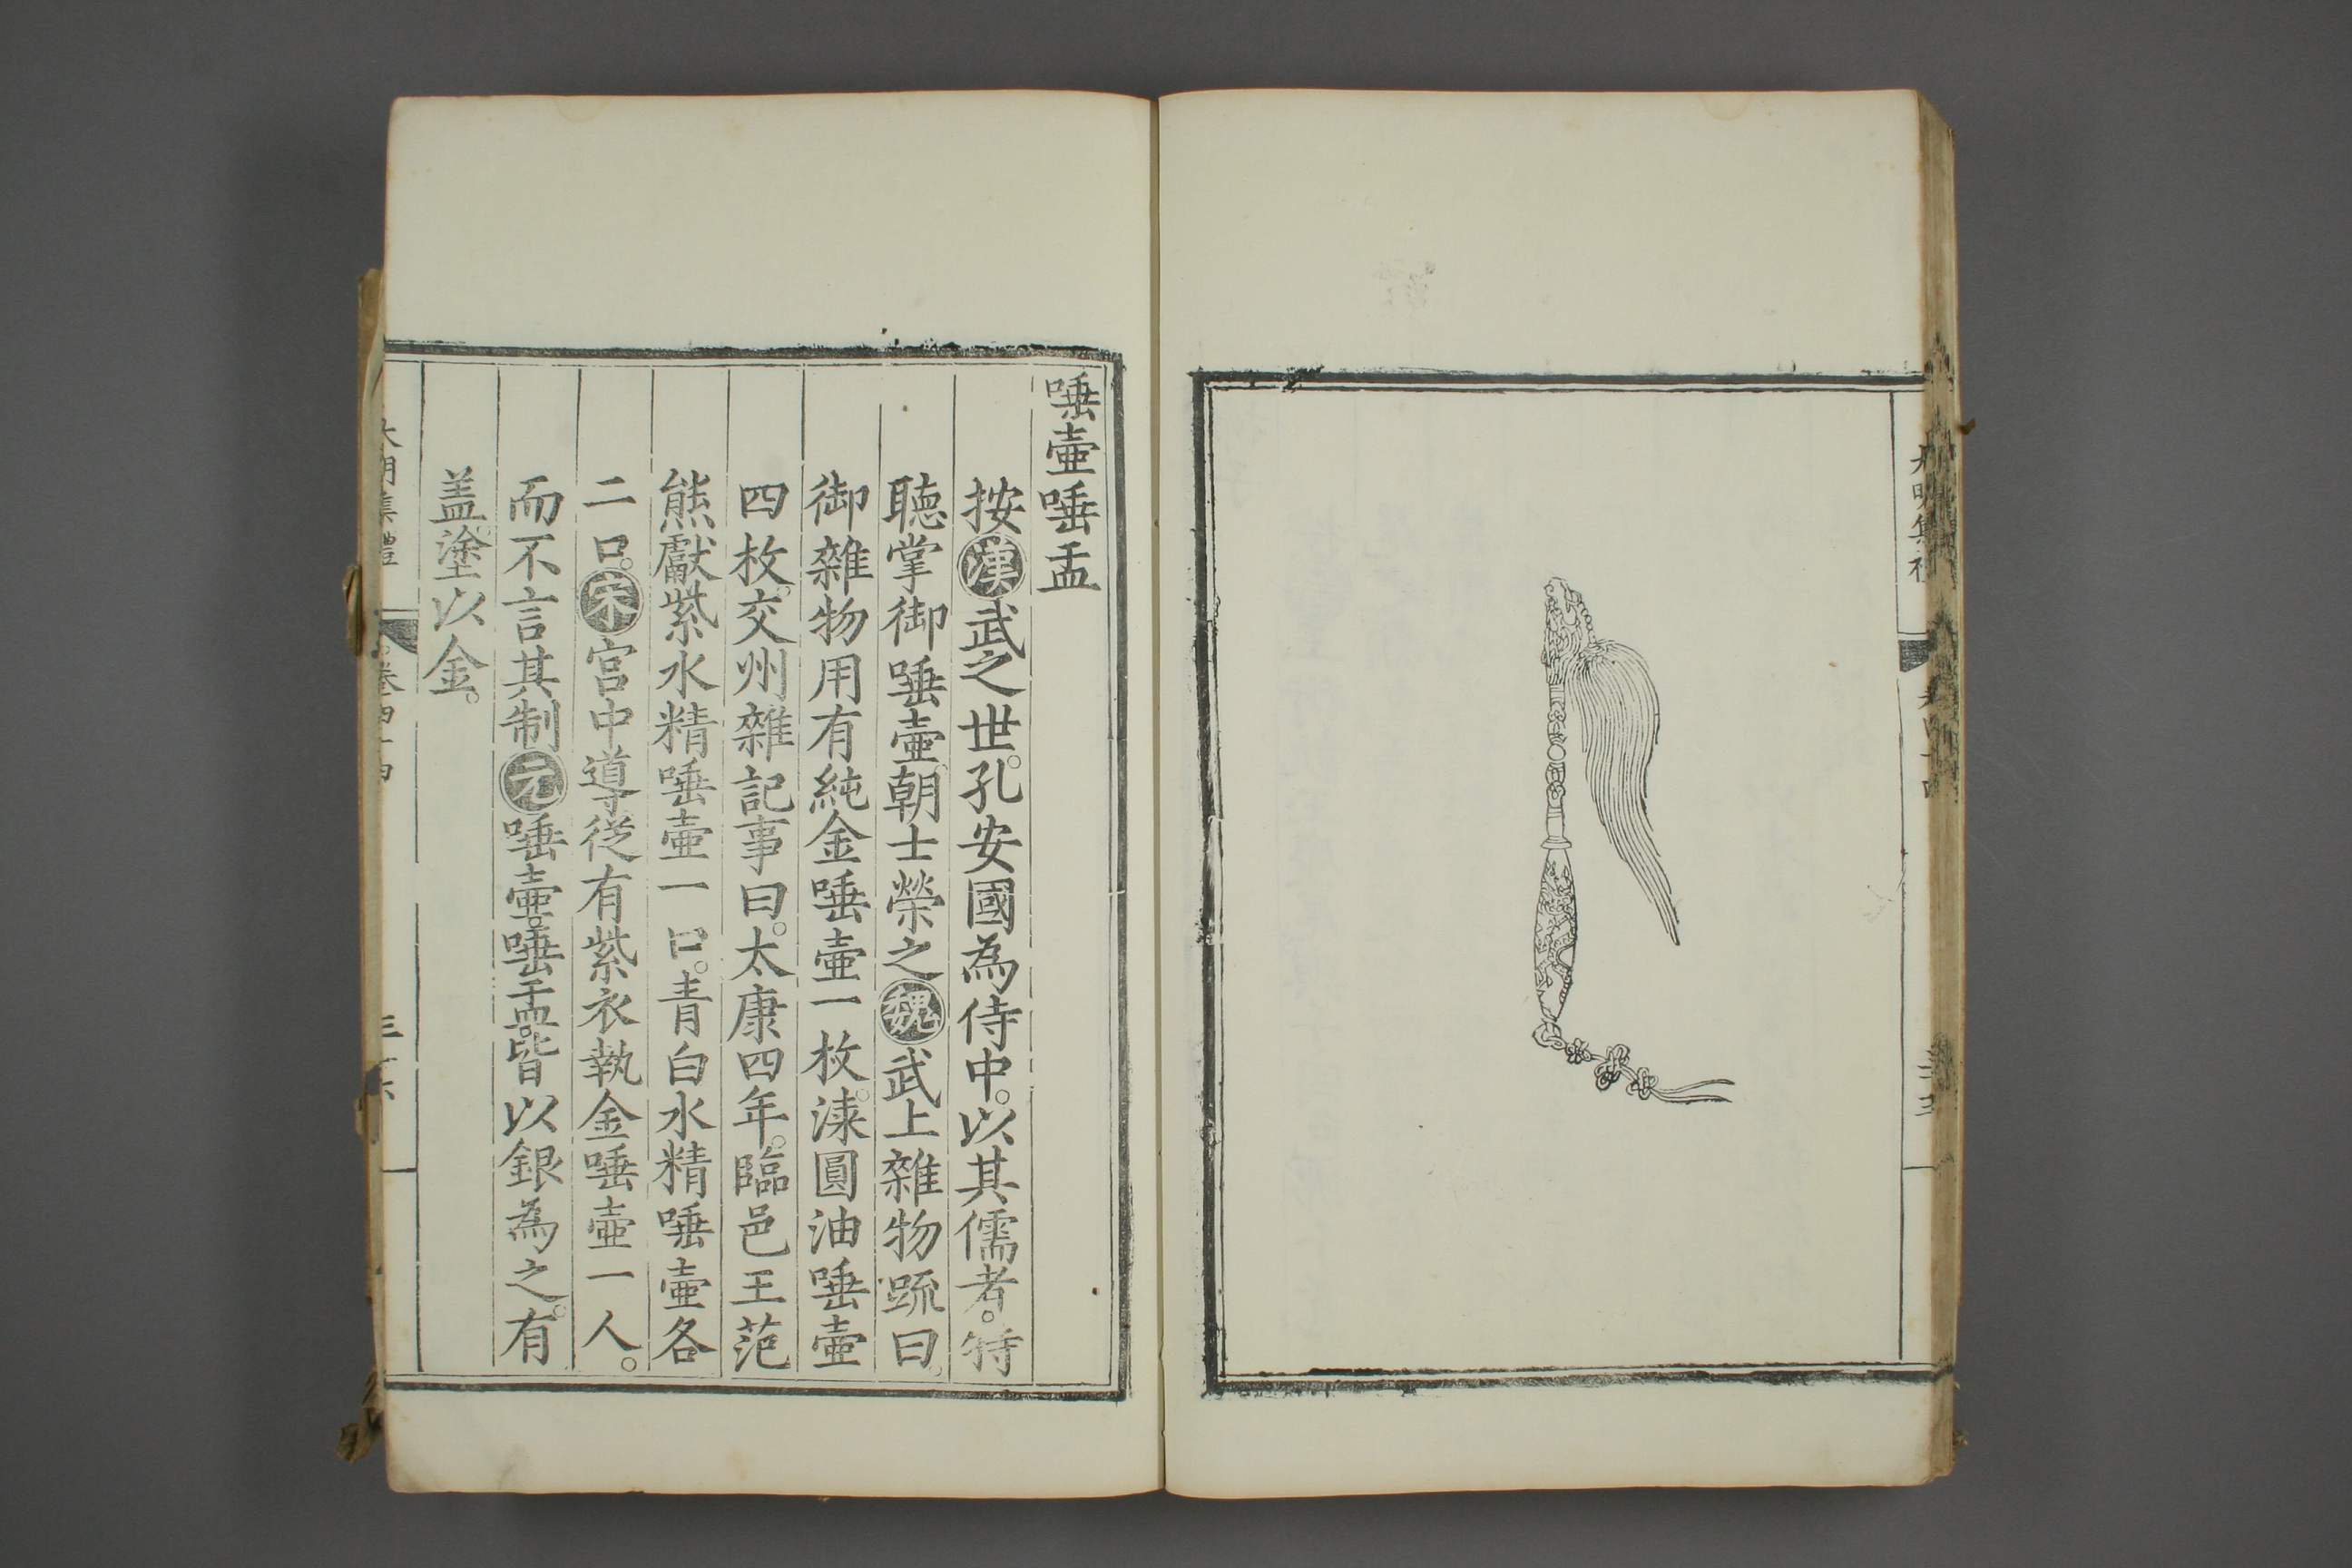 唾壷唾盂
按漢武之世。孔安國為侍中。以其儒者。特
聽掌御唾壷朝士榮之魏武上雜物䟽曰。
御雜物用有純金唾壷一枚。漆圓油唾壷
四枚。交州雜記事曰。太康四年。臨邑王范
熊獻紫水精唾壷一口。青白水精唾壷各
二口。宋宮中導從有紫衣執金唾壷一人。
而不言其制元唾壷。唾盂。皆以銀為之。有
盖。塗以金。
大明集禮
卷四十四